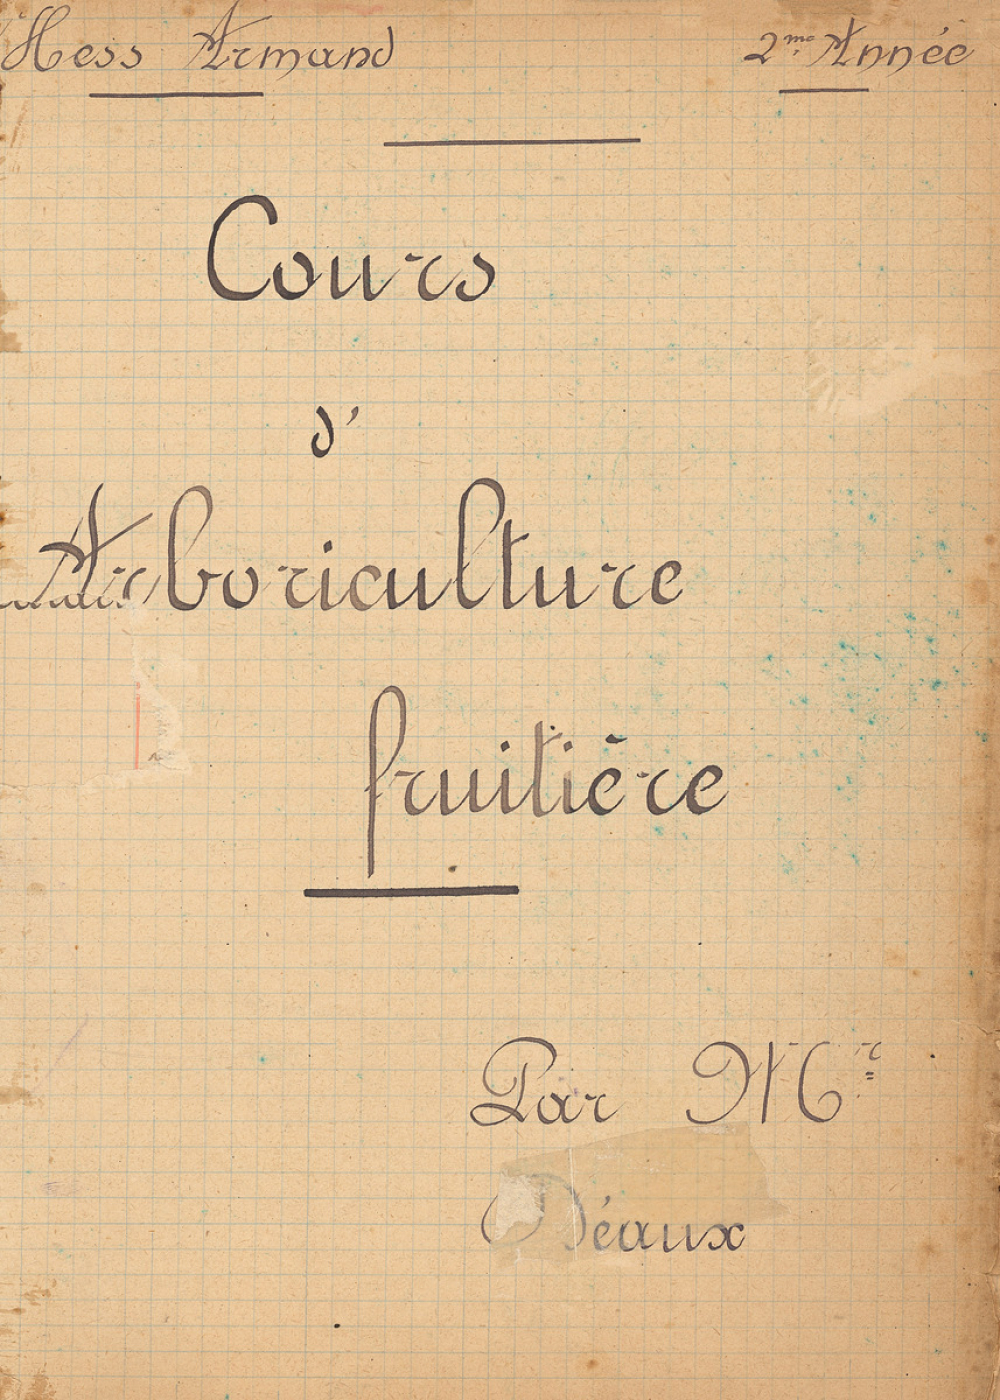 Hess Armand 2me Année
Cours
d'
Arboriculture
fruitière
Par Mr
Déaux